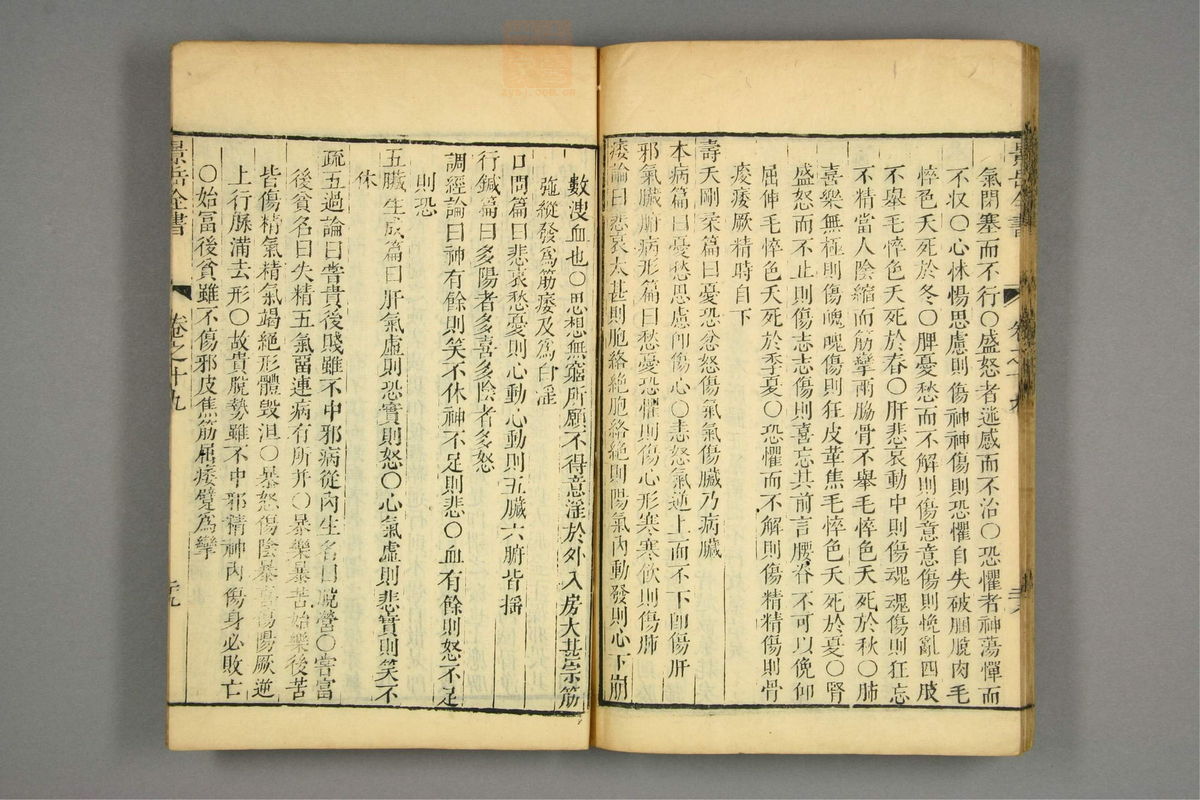 氣閉塞而不行○盛怒者迷惑而不治○恐懼者神蕩憚而
不収○心怵惕思慮則傷神神傷則恐懼自失破䐃脫肉毛
悴色夭死於冬○脾憂愁而不解則傷意意傷則悗亂四肢
不舉毛悴色夭死於春○肝悲哀動中則傷魂魂傷則狂忘
不精當人陰縮而筋攣兩脇骨不舉毛悴色夭死於秋○肺
喜樂無極則傷魄魄傷則狂皮革焦毛悴色夭死於夏○腎
盛怒而不止則傷志志傷則喜忘其前言腰脊不可以俛仰
屈伸毛悴色夭死於季夏○恐懼而不解則傷精精傷則骨
痠痿厥精時自下
壽夭剛柔篇曰憂恐忿怒傷氣氣傷臟乃病臟
本病篇曰憂愁思慮卽傷心○恚怒氣逆上而不下卽傷肝
邪氣臟腑病形篇曰愁憂恐懼則傷心形寒寒飲則傷肺
痿論曰悲哀太甚則胞絡絶胞絡絶則陽氣內動發則心下崩
景岳全書
卷之十九
數溲血也○思想無窮所願不得意淫於外入房太甚宗筋
弛縱發爲筋痿及爲白淫
口問篇曰悲哀愁憂則心動心動則五臟六腑皆揺
行鍼篇曰多陽者多喜多陰者多怒
調經論曰神有餘則笑不休神不足則悲○血有餘則怒不足
則恐
五臟生成篇曰肝氣虛則恐實則怒○心氣虛則悲實則笑不
休
疏五過論曰嘗貴後賤雖不中邪病從內生名曰脫營○嘗富
後貧名曰失精五氣留連病有所并○暴樂暴苦始樂後苦
皆傷精氣精氣竭絶形體毀沮○暴怒傷陰暴喜傷陽厥逆
上行脈滿去形○故貴脫勢雖不中邪精神內傷身必敗亡
○始富後貧雖不傷邪皮焦筋屈痿躄爲攣
景岳全書
卷之十九